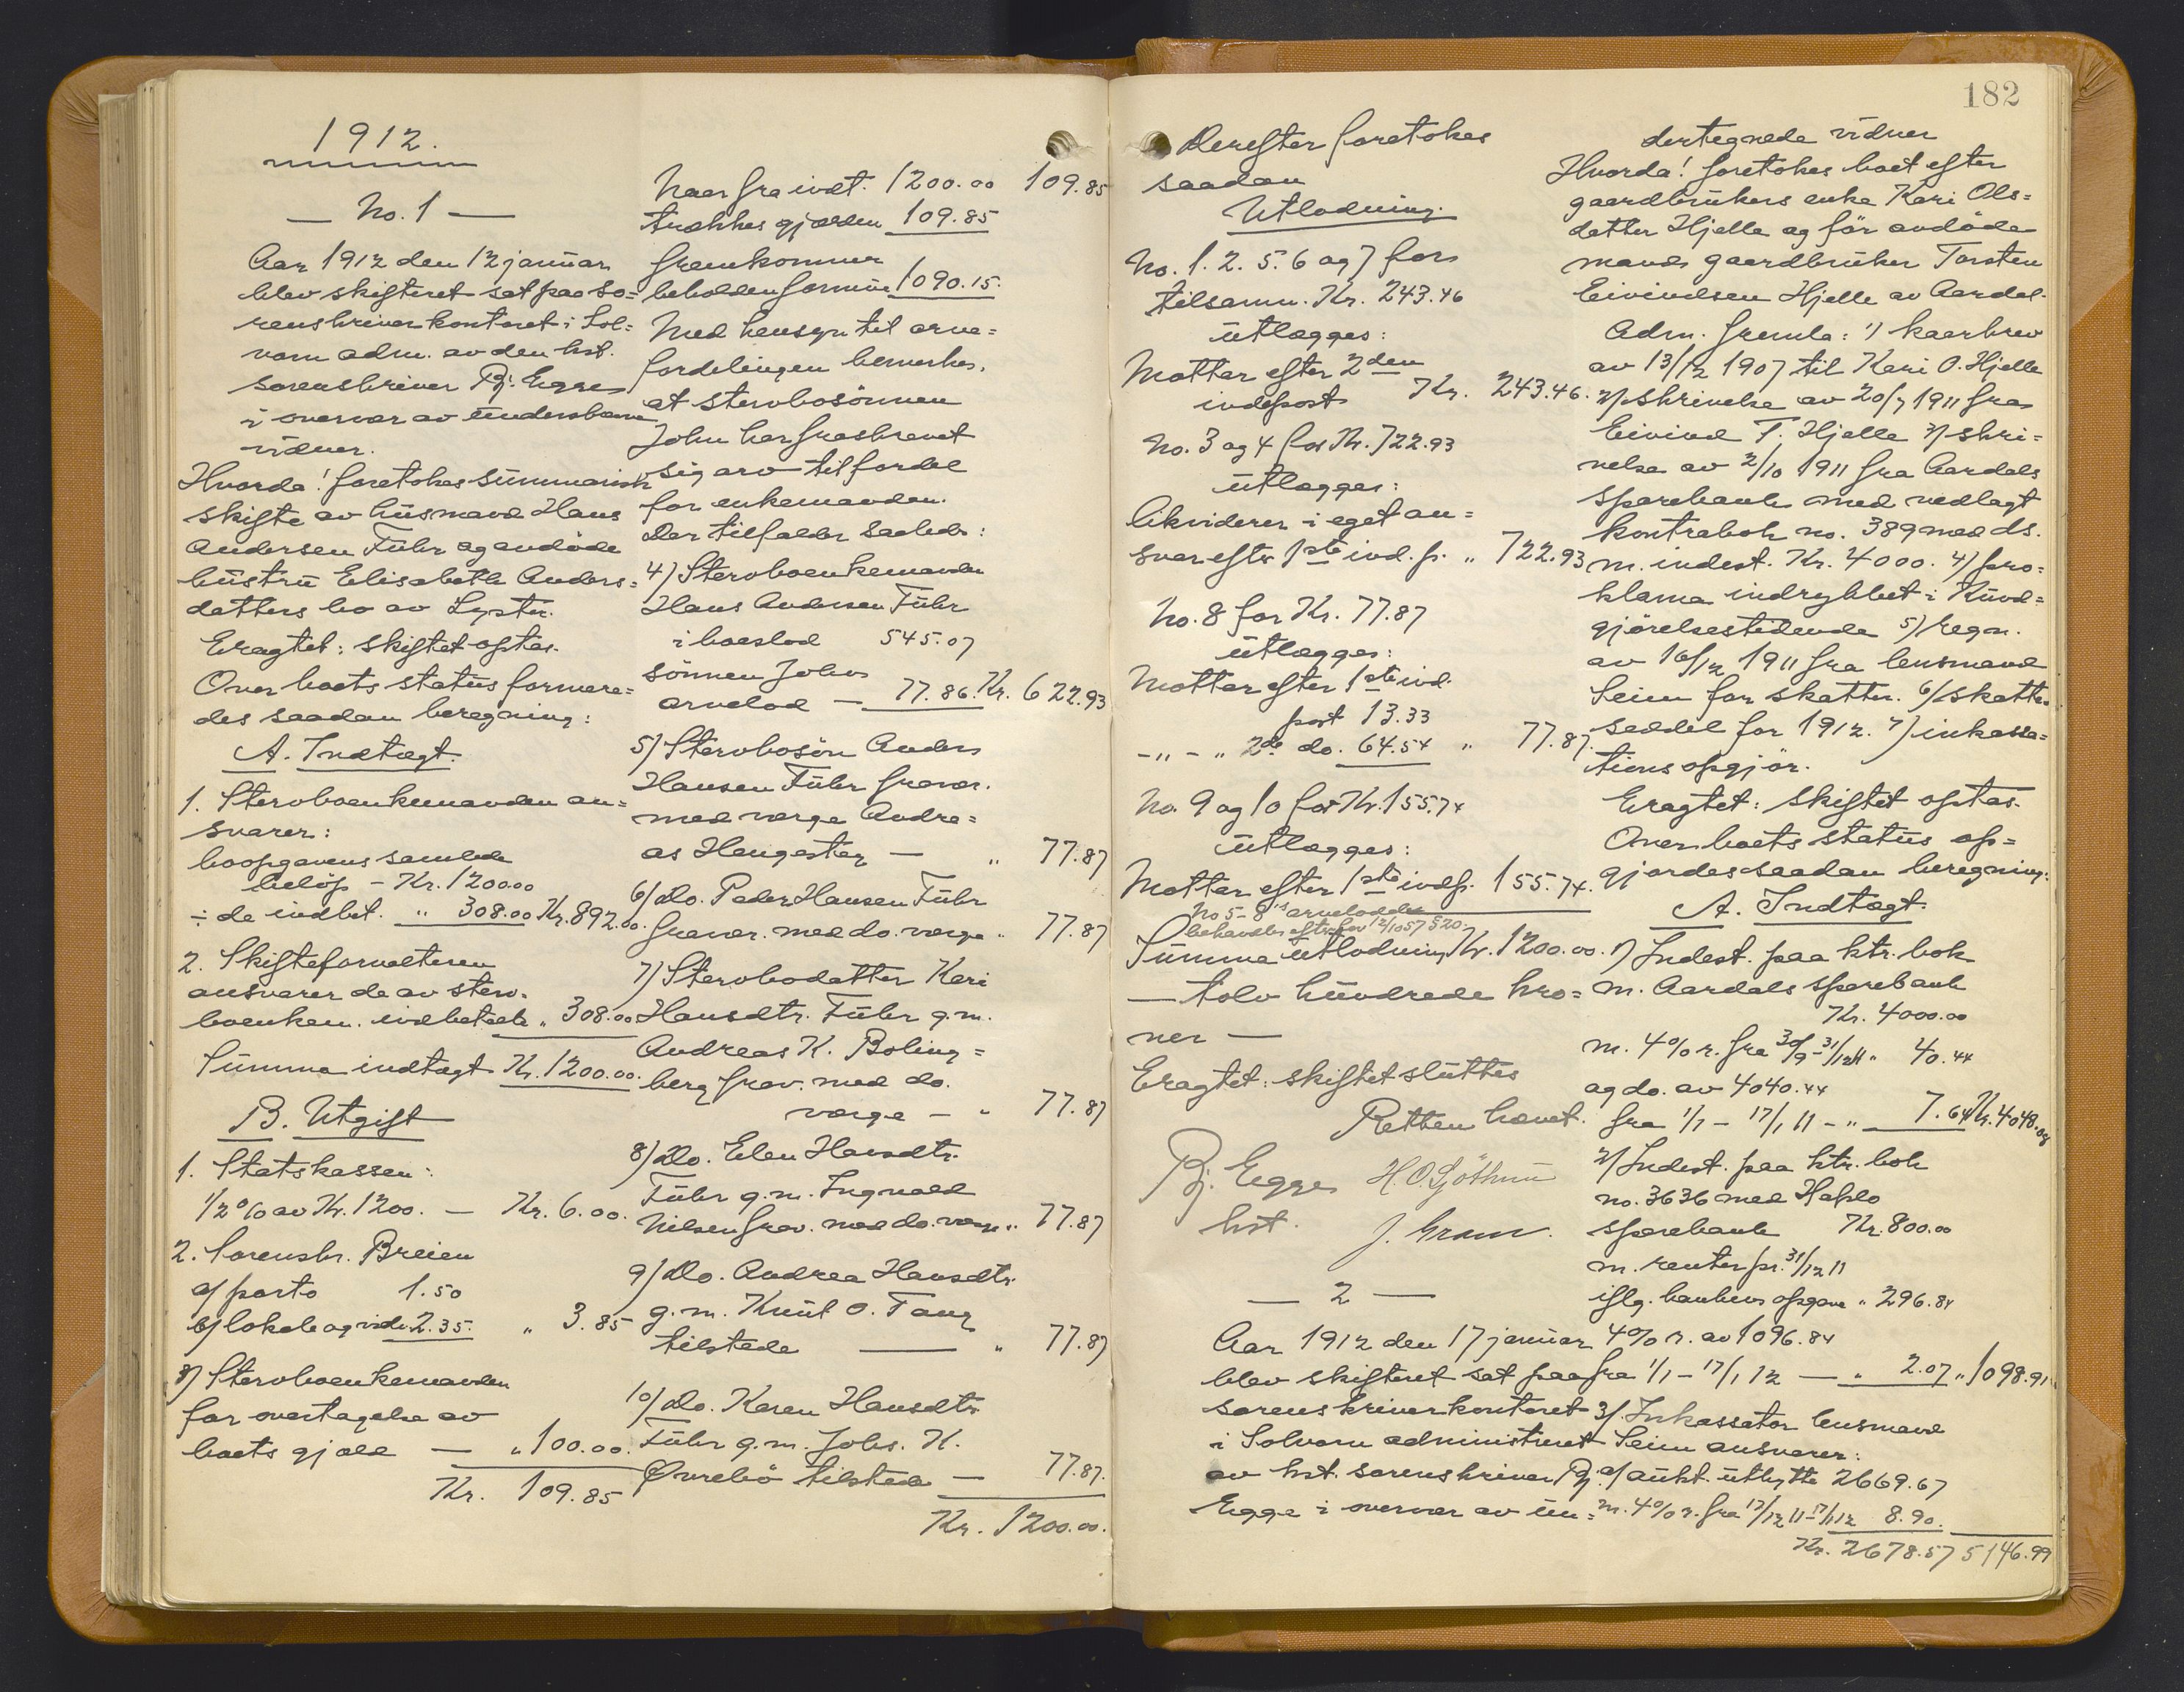 1912.
— No. 1 —
Aar 1912 den 12 januar
blev skifteret sat paa so=
renskriverkontoret i Sol=
vorn adm. av den kst.
sorenskriver Bj. Egge
i overvær av underskrevne
vidner.
Hvorda! foretokes summarisk
skifte av husmand Hans
Andersen Fuhr og avdøde
hustru Elisabeth Anders=
datters bo av Lyster.
Eragtet: skiftet optas.
Over boets status formere=
des saadan beregning:
A. Indtægt.
1. Stervboenkemanden an=
svarer:
boopgavens samlede
beløp - Kr. 1200.00
÷ de indbet. " 308.00 Kr. 892.00.
2. Skifteforvalteren
ansvarer de av sterv-
boenkem. indbetalte " 308.00
Summa indtægt Kr. 1200.00.
B. Utgift
1. Statskassen:
1/2 % av Kr. 1200. — Kr. 6.00.
2. Sorenskr. Breien
a/ porto 1.50
b/ lokale og vidn. 2.35. " 3.85
3) Stervboenkemanden
for overtagelse av
boets gjæld — " 100.00.
Kr. 109.85
109.85
Naar fra indt. 1200.00
trækkes gjælden 109.85
fremkommer
beholden formue 1090.15.
Med hensyn til arve=
fordelingen bemerkes,
at stervbosønnen
John har fraskrevet
sig arv til fordel
for enkemanden.
Der tilfalder saaledes:
4) Stervboenkemanden
Hans Andersen Fuhr
i boeslod 545.07
sønnen Johns
arvelod — 77.86. Kr. 622.93
5) Stervbosøn Anders
Hansen Fuhr fravær.
med værge Andre=
as Haugestøg — " 77.87
6) Do. Peder Hansen Fuhr
fravær. med do. værge " 77.87
7) Stervbodatter Kari
Hansdtr. Fuhr g.m.
Andreas K. Boling=
berg frav. med do.
værge — " 77.87
8) Do. Elen Hansdtr.
Fuhr g.m. Ingvald
Nilsen frav. med do. værge " 77.87
9) Do. Andrea Hansdtr.
g.m. Knut O. Fang
tilstede — " 77.87
10) Do. Karen Hansdtr.
Fuhr g.m. Johs. K.
Øvrebö tilstede — 77.87.
Kr. 1200.00.
182
Derefter foretokes
saadan
Utlodning.
No. 1. 2. 5. 6 og 7 for
tilsamm. Kr. 243.46
utlægges:
Mottar efter 2den
indpost Kr. 243.46.
No. 3 og 4 for Kr. 722.93
utlægges:
likviderer i eget an=
svar efter 1ste ind.p. " 722.93
No. 8 for Kr. 77.87
utlægges:
Mottar efter 1ste ind.
post 13.33
-"- " 2de do. 64.54 " 77.87.
No. 9 og 10 for Kr. 155.74
utlægges:
Mottar efter 1ste indp. 155.74.
No 5-8's arvelodder
behandles efter lov 12/10 57 § 20.
Summa utlodning Kr. 1200.00.
— tolv hundrede kro=
ner —
Eragtet: skiftet sluttes
Retten hævet.
Bj. Egge H. O. Sjøthun
kst. J. Gram.
— 2 —
Aar 1912 den 17 januar
blev skifteret sat paa
sorenskriverkontoret
i Solvorn administreret
av kst. sorenskriver Bj.
Egge i overvær av un=
dertegnede vidner
Hvorda! foretokes boet efter
gaardbrukers enke Kari Ols=
datter Hjelle og før avdøde
mands gaardbruker Torsten
Eivindsen Hjelle av Aardal.
Adm. fremla: 1) kaarbrev
av 13/12 1907 til Kari O. Hjelle
2) skrivelse av 20/7 1911 fra
Eivind T. Hjelle 3) skri=
velse av 2/10 1911 fra Aardals
sparebank med vedlagt
kontrabok no. 389 med ds.
m. indest. Kr. 4000. 4) pro=
klama indrykket i Kund=
gjørelsestidende 5) regn.
av 16/12 1911 fra lensmand
Seim for skatter. 6) skatte=
seddel for 1912. 7) inkassa=
tionsopgjør.
Eragtet: skiftet optas.
Over boets status op=
gjordes saadan beregning:
A. Indtægt.
1) Indest. paa ktr. bok
m. Aardals sparebank
Kr. 4000.00
m. 4 % r. fra 30/9 - 31/12 11 " 40.44
og do. av 4040.44
fra 1/1 - 17/1 11 - " 7.64 Kr. 4048.08
2) Indest. paa ktr. bok
no. 3636 med Hafslo
sparebank Kr. 800.00
m. renter pr. 31/12 11
iflg. bankens opgave " 296.84
4 % r. av 1096.84
fra 1/1 - 17/1 12 — " 2.07 " 1098.91
3). Inkassator lensmand
Seim ansvarer:
a/ aukt. utbytte 2669.67
m. 4 % r. fra 17/12 11 - 17/1 12 8.90.
Kr. 2678.57 5146.99